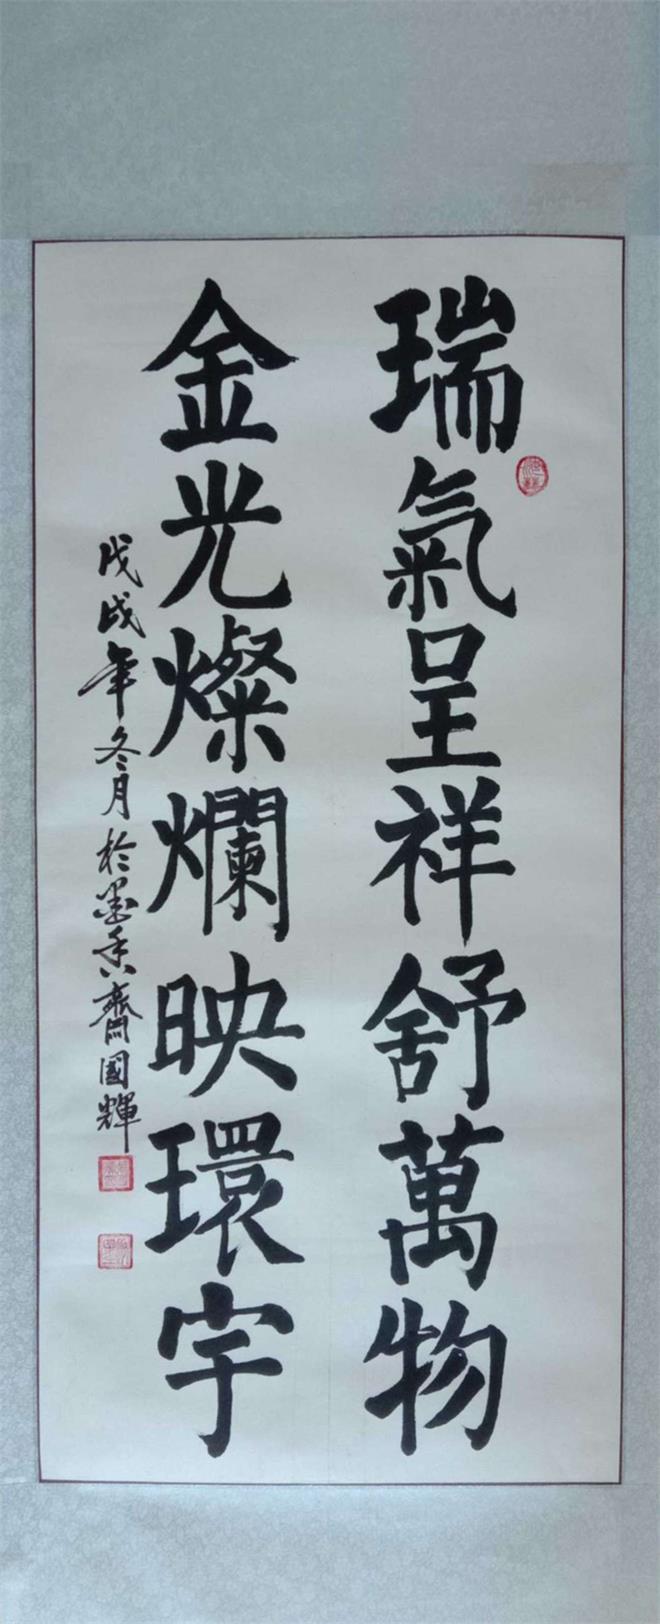 瑞氣呈祥舒萬物
金光燦爛映環宇
戊戌年冬月於墨香齋國輝